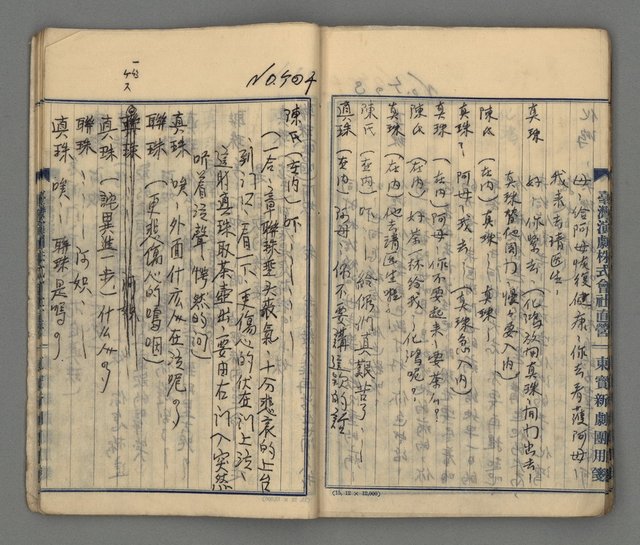 化鳴
給阿母恢復健康、你去看護阿母、
我来去請医生、
真珠 好、你緊去(化鳴放開真珠、開門出去)
真珠替他関门、慢々要入内)
陳氏(在内)真珠、真珠、
真珠、阿母、我去(真珠急入内)
真珠(在内)阿母、你不要起来、要茶么?
陳氏(在内)好、茶杯給我、化鳴呢?
真珠(在内)他去請医生啦、
陳氏(在内)吓、給你們真艱苦了、
真珠(在内)阿母、你不要講這款的話
臺灣演劇株式會社直營 東寶新劇團用箋
(15, 12 × 12,000)
NO.404
陳氏(在内)吓、
(一合、竟聯珠垂头喪氣、十分悲哀的上台
到门口、看一下、至傷心的伏在门上泣、
這时真珠取茶壺出、要由右门入突然
听着泣聲、愕然的问)
真珠 唉、外面什么人在泣呢?
聯珠(更悲傷心的鳴咽)
真珠(詫異進一步)什么人?
聯珠 阿姐、
真珠 唉、聯珠是嗎?